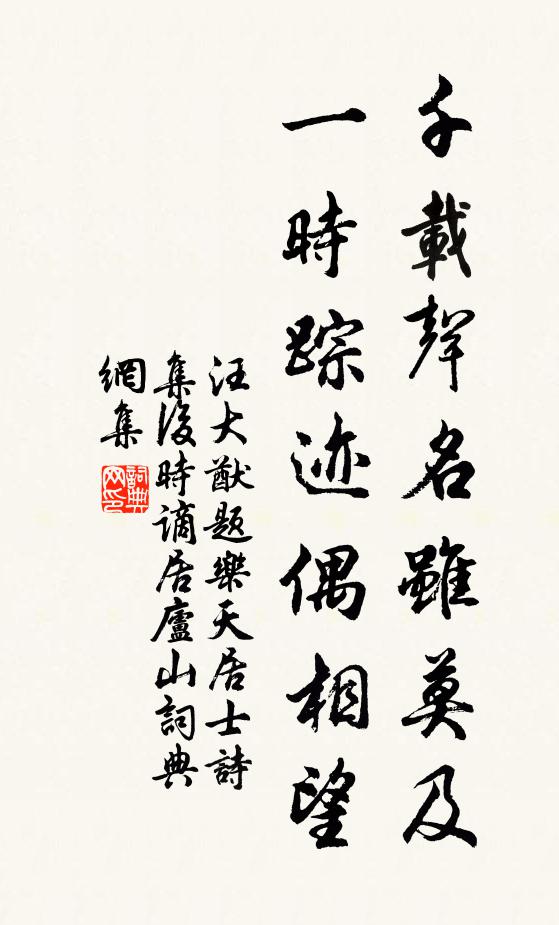 千載聲名雖莫及
一時踪迹偶相望
汪大猷題樂天居士詩
集後時謫居廬山詞典
網集
詞典網印